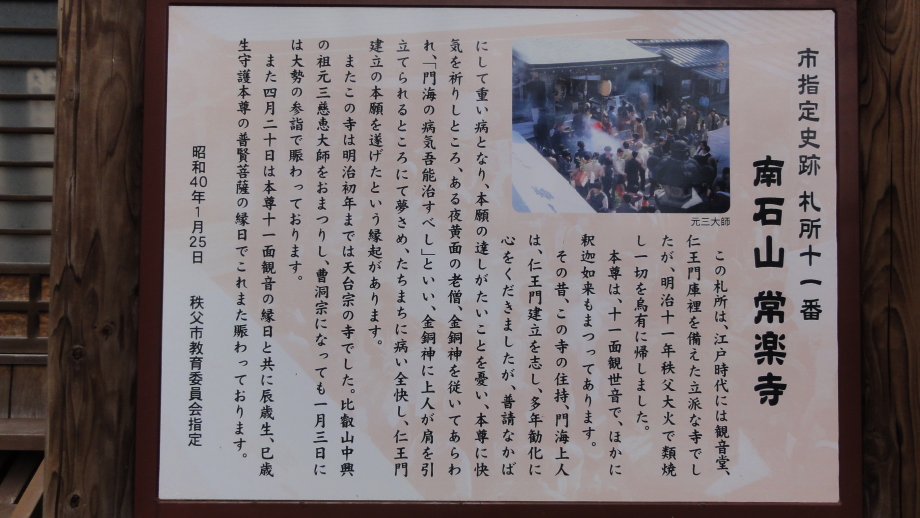 市指定史跡 札所十一番
南石山 常楽寺
元三大師
この札所は、江戸時代には観音堂、
仁王門庫裡を備えた立派な寺でし
たが、明治十一年秩父大火で類焼
し一切を烏有に帰しました。
本尊は、十一面観世音で、ほかに
釈迦如来もまつってあります。
その昔、この寺の住持、門海上人
は、仁王門建立を志し、多年勧化に
心をくだきましたが、普請なかば
にして重い病となり、本願の達しがたいことを憂い、本尊に快
気を祈りしところ、ある夜黄面の老僧、金銅神を従いてあらわ
れ、「門海の病気吾能治すべし」といい、金銅神に上人が肩を引
立てられるところにて夢さめ、たちまちに病い全快し、仁王門
建立の本願を遂げたという縁起があります。
またこの寺は明治初年までは天台宗の寺でした。比叡山中興
の祖元三慈恵大師をおまつりし、曹洞宗になっても一月三日に
は大勢の参詣で賑わっております。
また四月二十日は本尊十一面観音の縁日と共に辰歳生、巳歳
生守護本尊の普賢菩薩の縁日でこれまた賑わっております。
昭和40年1月25日 秩父市教育委員会指定